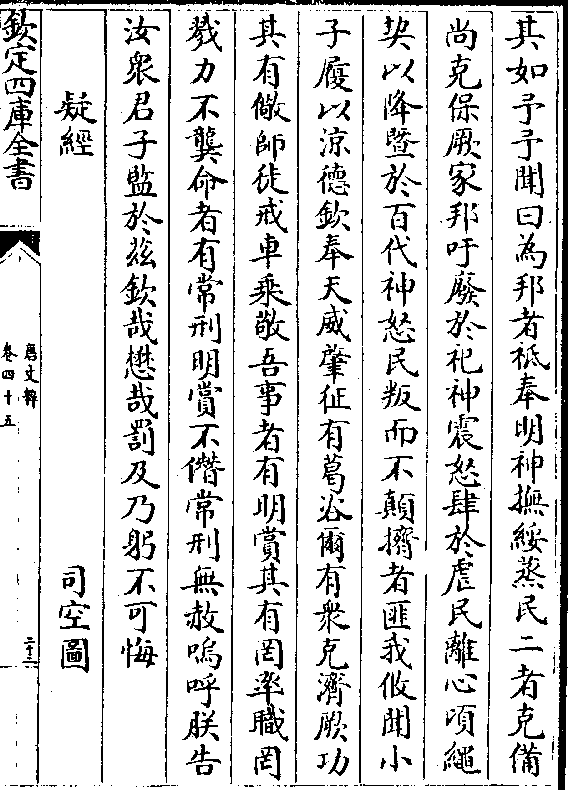 其如予予聞曰為邦者祇奉明神撫綏蒸民二者克備
尚克保厥家邦吁廢於祀神震怒肆於虐民離心頃繩
契以降暨於百代神怒民叛而不顛擠者匪我攸聞小
子履以涼德欽奉天威肇征有葛浴爾有衆克濟厥功
其有儆師徒戒車乗敬吾事者有明賞其有罔率職罔
戮力不龔命者有常刑明賞不僭常刑無赦嗚呼朕告
汝衆君子監於兹欽哉懋哉罰及乃躬不可悔
疑經 司空圖
欽定四庫全書
唐文粹
卷四十五
二十二